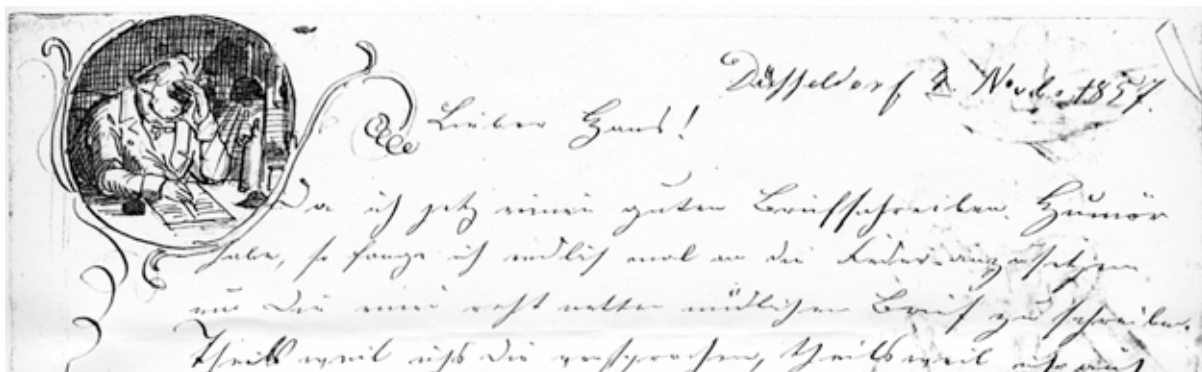 Düsseldorf 4. Novb. 1857.
Lieber Hans!
Da ich jetz einen guten Briefschreiben Humör
habe, so fange ich endlich mal an die Feder anzusetzen
um Dir einen recht netten Brief zu schreiben.
Theils weil ichs Dir versprochen, theils weil ich auch